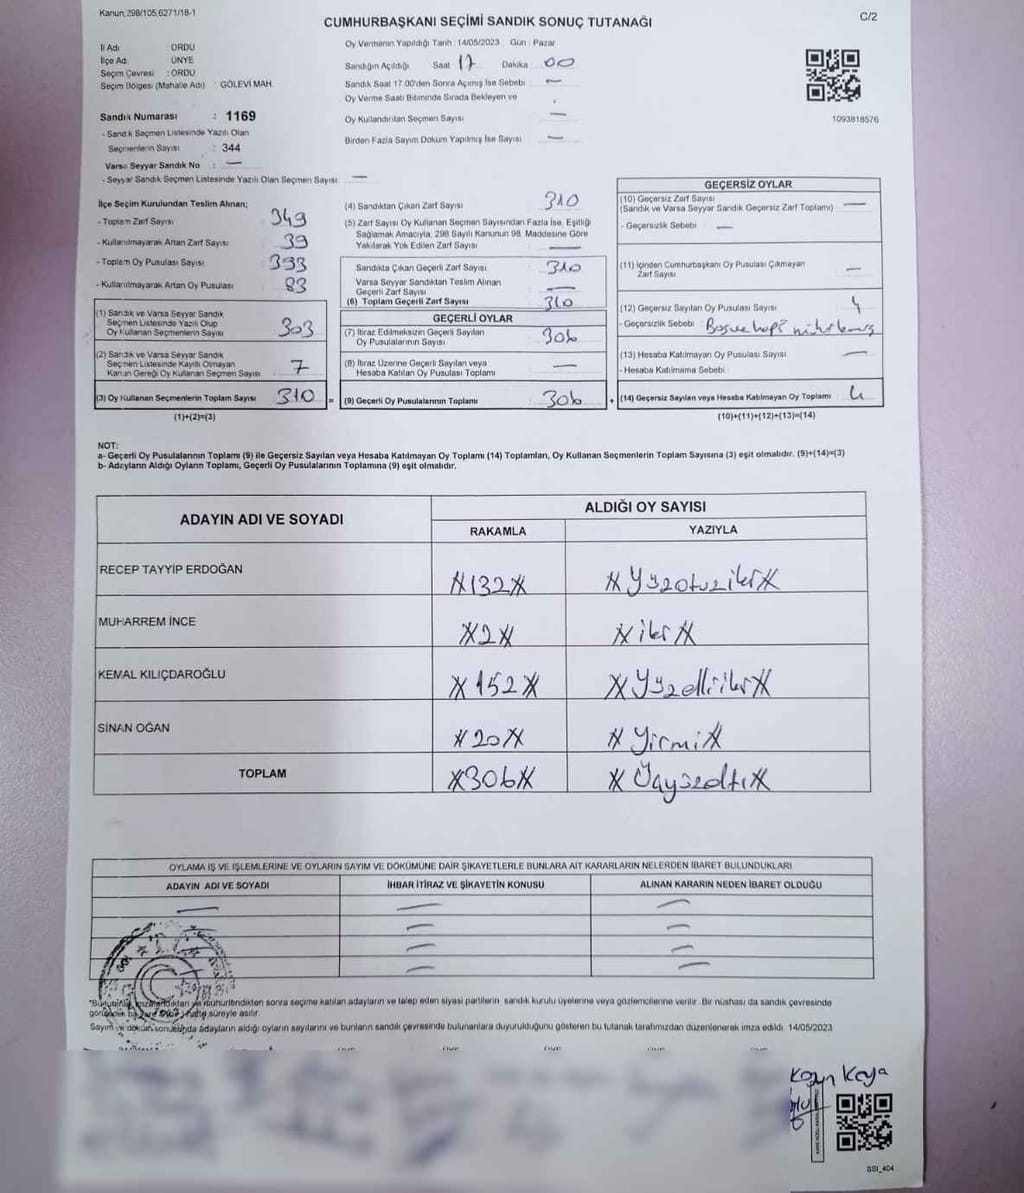 Kanun:298/105,6271/18-1
CUMHURBAŞKANI SEÇİMİ SANDIK SONUÇ TUTANAĞI
C/2
İl Adı ORDU
İlçe Adı ÜNYE
Seçim Çevresi : ORDU
Seçim Bölgesi (Mahalle Adı) : GÖLEVİ MAH.
Sandık Numarası : 1169
- Sandık Seçmen Listesinde Yazılı Olan
Seçmenlerin Sayısı : 344
Varsa Seyyar Sandık No : —
- Seyyar Sandık Seçmen Listesinde Yazılı Olan Seçmen Sayısı —
Oy Vermenin Yapıldığı Tarih : 14/05/2023 Gün : Pazar
Sandığın Açıldığı Saat 17 Dakika 00
Sandık Saat 17.00'den Sonra Açımış İse Sebebi —
Oy Verme Saati Bitiminde Sırada Bekleyen ve
Oy Kullandırılan Seçmen Sayısı —
Birden Fazla Sayım Döküm Yapılmış İse Sayısı —
1093818576
İlçe Seçim Kurulundan Teslim Alınan;
- Toplam Zarf Sayısı 349
- Kullanılmayarak Artan Zarf Sayısı 39
- Toplam Oy Pusulası Sayısı 393
- Kullanılmayarak Artan Oy Pusulası 83
(1) Sandık ve Varsa Seyyar Sandık
Seçmen Listesinde Yazılı Olup
Oy Kullanan Seçmenlerin Sayısı 303
(2) Sandık ve Varsa Seyyar Sandık
Seçmen Listesinde Kayıtlı Olmayan
Kanun Gereği Oy Kullanan Seçmen Sayısı 7
(3) Oy Kullanan Seçmenlerin Toplam Sayısı 310 =
(1)+(2)=(3)
(4) Sandıktan Çıkan Zarf Sayısı 310
(5) Zarf Sayısı Oy Kullanan Seçmen Sayısından Fazla İse, Eşitliği
Sağlamak Amacıyla, 298 Sayılı Kanunun 98. Maddesine Göre
Yakılarak Yok Edilen Zarf Sayısı —
Sandıkta Çıkan Geçerli Zarf Sayısı 310
Varsa Seyyar Sandıktan Teslim Alınan
Geçerli Zarf Sayısı —
(6) Toplam Geçerli Zarf Sayısı 310
GEÇERLİ OYLAR
(7) İtiraz Edilmeksizin Geçerli Sayılan
Oy Pusulalarının Sayısı 306
(8) İtiraz Üzerine Geçerli Sayılan veya
Hesaba Katılan Oy Pusulası Toplamı —
(9) Geçerli Oy Pusulalarının Toplamı 306 +
GEÇERSİZ OYLAR
(10) Geçersiz Zarf Sayısı
(Sandık ve Varsa Seyyar Sandık Geçersiz Zarf Toplamı) —
- Geçersizlik Sebebi —
(11) İçinden Cumhurbaşkanı Oy Pusulası Çıkmayan
Zarf Sayısı —
(12) Geçersiz Sayılan Oy Pusulası Sayısı 4
- Geçersizlik Sebebi
(13) Hesaba Katılmayan Oy Pusulası Sayısı —
- Hesaba Katılmama Sebebi
(14) Geçersiz Sayılan veya Hesaba Katılmayan Oy Toplamı 4
(10)+(11)+(12)+(13)=(14)
NOT:
a- Geçerli Oy Pusulalarının Toplamı (9) ile Geçersiz Sayılan veya Hesaba Katılmayan Oy Toplamı (14) Toplamları, Oy Kullanan Seçmenlerin Toplam Sayısına (3) eşit olmalıdır. (9)+(14)=(3)
b- Adayların Aldığı Oyların Toplamı, Geçerli Oy Pusulalarının Toplamına (9) eşit olmalıdır.
ADAYIN ADI VE SOYADI ALDIĞI OY SAYISI
RAKAMLA YAZIYLA
RECEP TAYYİP ERDOĞAN #132# #Yüzotuziki#
MUHARREM İNCE #2# #iki#
KEMAL KILIÇDAROĞLU #152# #Yüzelliiki#
SİNAN OĞAN #20# #Yirmi#
TOPLAM #306# #Üçyüzaltı#
OYLAMA İŞ VE İŞLEMLERİNE VE OYLARIN SAYIM VE DÖKÜMÜNE DAİR ŞİKAYETLERLE BUNLARA AİT KARARLARIN NELERDEN İBARET BULUNDUKLARI
ADAYIN ADI VE SOYADI İHBAR İTİRAZ VE ŞİKAYETİN KONUSU ALINAN KARARIN NEDEN İBARET OLDUĞU
mühürlendikten sonra seçime katılan adayların ve talep eden siyasi partilerin sandık kurulu üyelerine veya gözlemcilerine verilir. Bir nüshası da sandık çevresinde
süreyle asılır.
Sayım ve döküm sonucunda adayların aldığı oyların sayılarını ve bunların sandık çevresinde bulunanlara duyurulduğunu gösteren bu tutanak tarafımızdan düzenlenerek imza edildi. 14/05/2023
Kaya
SSI_404